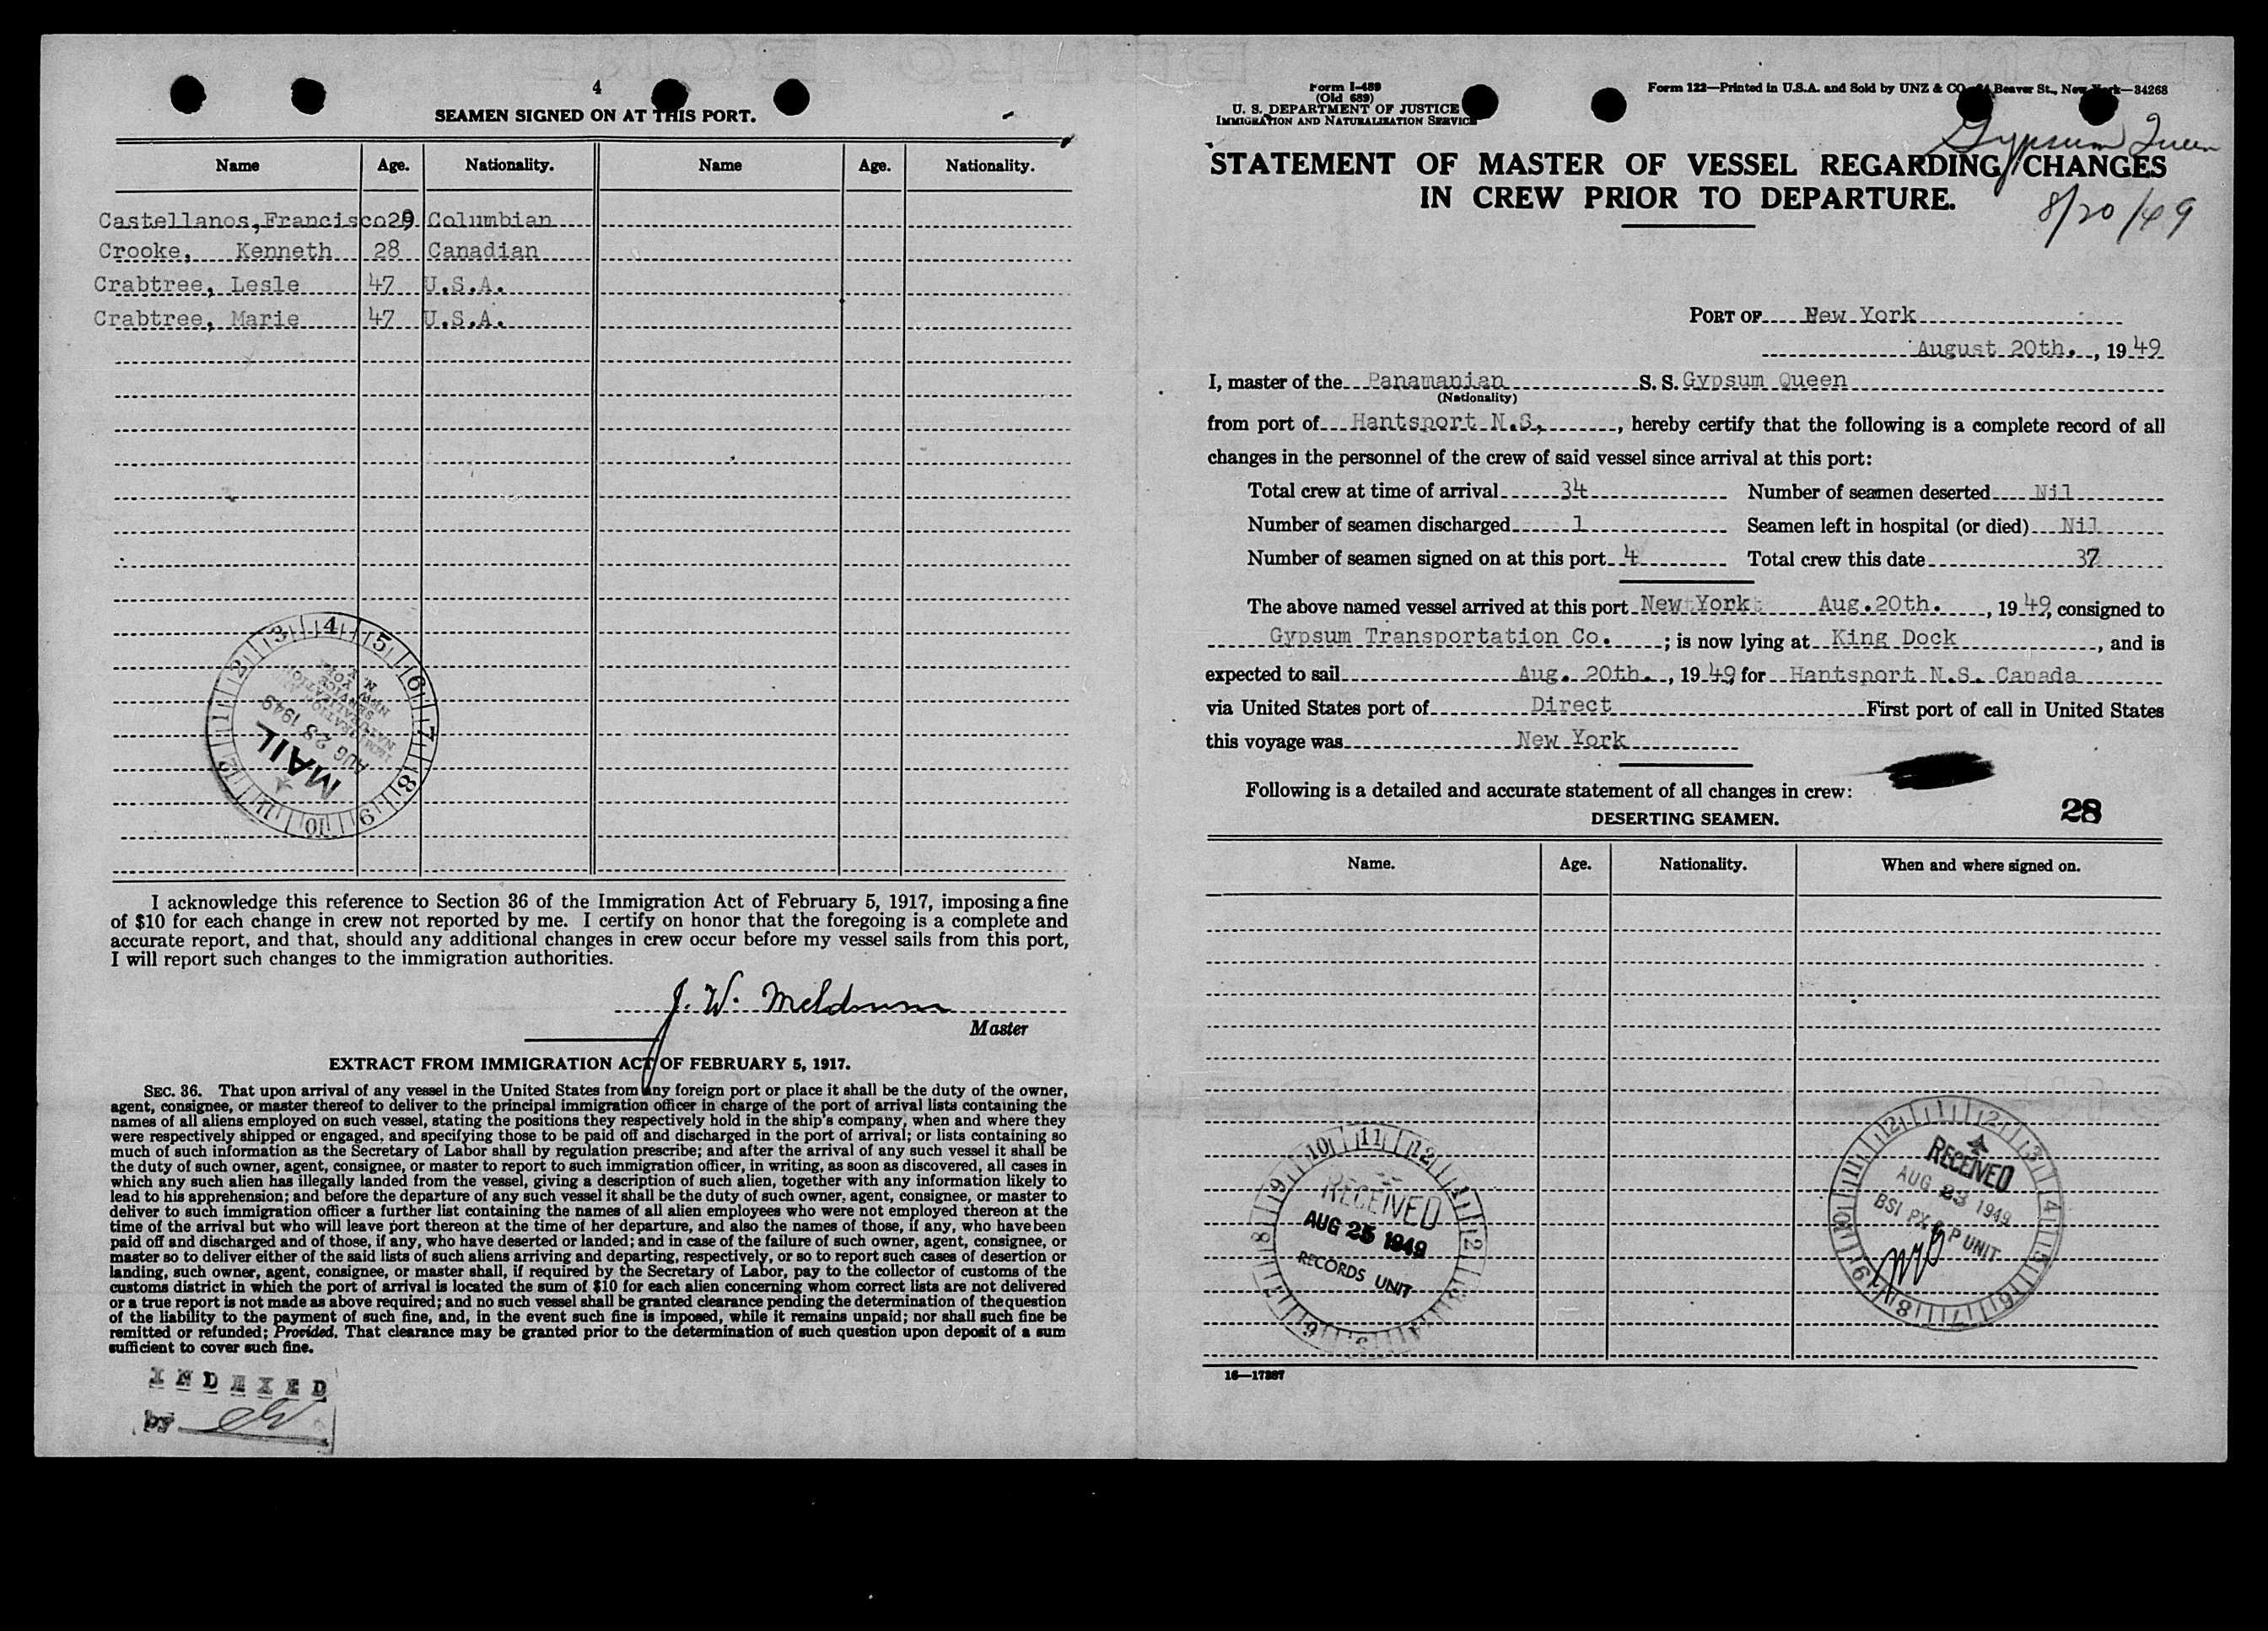 4
SEAMEN SIGNED ON AT THIS PORT.
Name Age. Nationality. Name Age. Nationality.
Castellanos, Francisco 29 Columbian
Crooke, Kenneth 28 Canadian
Crabtree, Lesle 47 U.S.A.
Crabtree, Marie 47 U.S.A.
1 2 3 4 5 6 7 8 9 10 11 12
IMMIGRATION AND
NATURALIZATION
SERVICE
NEW YORK
N. Y.
AUG 23 1949
MAIL
I acknowledge this reference to Section 36 of the Immigration Act of February 5, 1917, imposing a fine
of $10 for each change in crew not reported by me. I certify on honor that the foregoing is a complete and
accurate report, and that, should any additional changes in crew occur before my vessel sails from this port,
I will report such changes to the immigration authorities.
J. W. Meldrum
Master
EXTRACT FROM IMMIGRATION ACT OF FEBRUARY 5, 1917.
SEC. 36. That upon arrival of any vessel in the United States from any foreign port or place it shall be the duty of the owner,
agent, consignee, or master thereof to deliver to the principal immigration officer in charge of the port of arrival lists containing the
names of all aliens employed on such vessel, stating the positions they respectively hold in the ship's company, when and where they
were respectively shipped or engaged, and specifying those to be paid off and discharged in the port of arrival; or lists containing so
much of such information as the Secretary of Labor shall by regulation prescribe; and after the arrival of any such vessel it shall be
the duty of such owner, agent, consignee, or master to report to such immigration officer, in writing, as soon as discovered, all cases in
which any such alien has illegally landed from the vessel, giving a description of such alien, together with any information likely to
lead to his apprehension; and before the departure of any such vessel it shall be the duty of such owner, agent, consignee, or master to
deliver to such immigration officer a further list containing the names of all alien employees who were not employed thereon at the
time of the arrival but who will leave port thereon at the time of her departure, and also the names of those, if any, who have been
paid off and discharged and of those, if any, who have deserted or landed; and in case of the failure of such owner, agent, consignee, or
master so to deliver either of the said lists of such aliens arriving and departing, respectively, or so to report such cases of desertion or
landing, such owner, agent, consignee, or master shall, if required by the Secretary of Labor, pay to the collector of customs of the
customs district in which the port of arrival is located the sum of $10 for each alien concerning whom correct lists are not delivered
or a true report is not made as above required; and no such vessel shall be granted clearance pending the determination of the question
of the liability to the payment of such fine, and, in the event such fine is imposed, while it remains unpaid; nor shall such fine be
remitted or refunded; Provided, That clearance may be granted prior to the determination of such question upon deposit of a sum
sufficient to cover such fine.
INDEXED
by
Form I-489
(Old 689)
U. S. DEPARTMENT OF JUSTICE
IMMIGRATION AND NATURALIZATION SERVICE
Form 122—Printed in U.S.A. and Sold by UNZ & CO. Beaver St., New York—34268
Gypsum Queen
STATEMENT OF MASTER OF VESSEL REGARDING CHANGES
IN CREW PRIOR TO DEPARTURE.
8/20/49
PORT OF New York
August 20th., 1949
I, master of the Panamanian S. S. Gypsum Queen
(Nationality)
from port of Hantsport N.S., hereby certify that the following is a complete record of all
changes in the personnel of the crew of said vessel since arrival at this port:
Total crew at time of arrival 34 Number of seamen deserted Nil
Number of seamen discharged 1 Seamen left in hospital (or died) Nil
Number of seamen signed on at this port 4 Total crew this date 37
The above named vessel arrived at this port New York Aug. 20th., 1949, consigned to
Gypsum Transportation Co.; is now lying at King Dock, and is
expected to sail Aug. 20th., 1949 for Hantsport N.S. Canada
via United States port of Direct First port of call in United States
this voyage was New York
Following is a detailed and accurate statement of all changes in crew:
28
DESERTING SEAMEN.
Name. Age. Nationality. When and where signed on.
RECEIVED
AUG 25 1949
RECORDS UNIT
RECEIVED
AUG 23 1949
BSI PX & P UNIT
16—17397